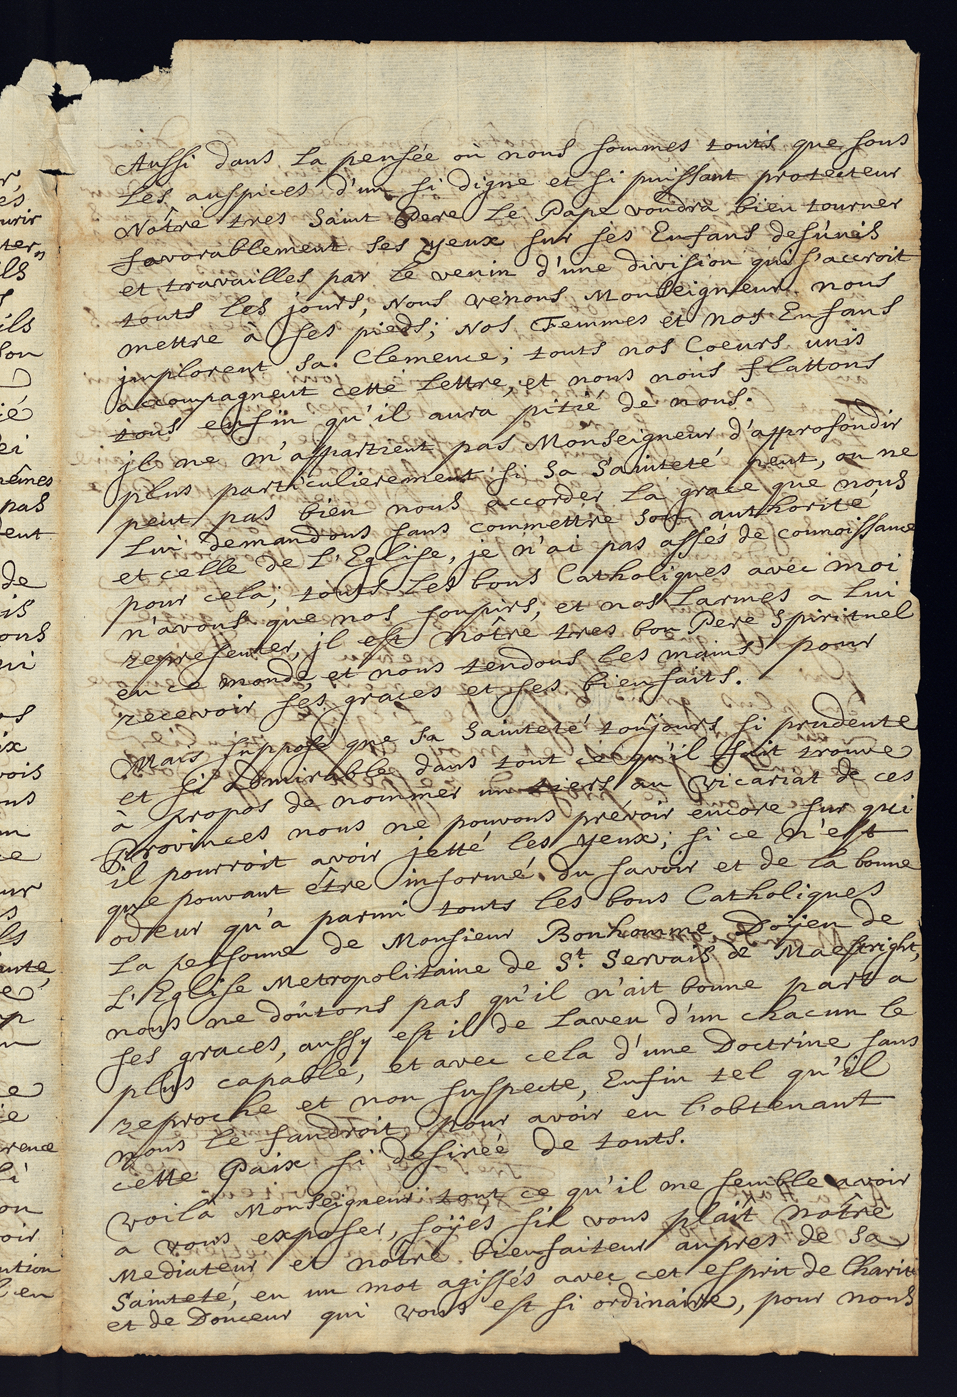 Aussi dans la pensée où nous sommes touts que sous
les auspices d'un si digne et si puissant protecteur
Nôtre tres Saint Pere le Pape voudra bien tourner
favorablement ses yeux sur ses Enfans desúnis
et travailles par le venin d'une division qui s'accroit
touts les jours, Nous venons Monseigneur nous
mettre à ses pieds; Nos Femmes et nos Enfans
jmplorent sa Clemence; touts nos Coeurs unis
accompagnent cette lettre, et nous nous flattons
tous enfin qu'il aura pitié de nous.
jl ne m'appartient pas Monseigneur d'approfondir
plus particulierement si Sa Sainteté peut, ou ne
peut pas bien nous accorder la grace que nous
Lui demandons sans commettre son authorité,
et celle de L'Eglise, je n'ai pas assés de connoissance
pour cela, touts les bons Catholiques avec moi
n'avons que nos soupirs, et nos larmes a lui
representer, jl est nôtre tres bon Pere Spirituel
en ce monde, et nous tendons les mains pour
recevoir ses graces et ses bienfaits.
Mais supposé que sa Sainteté toûjours si prudente
et si admirable dans tout ce qu'il fait trouve
à propos de nommer un tiers au Vicariat de ces
Provinces nous ne pouvons prevoir encore sur qui
il pourroit avoir jetté les yeux; si ce n'est
que pouvant être informé du savoir et de la bonne
odeur qu'a parmi touts les bons Catholiques
La personne de Monsieur Bonhomme Doÿen de
L'Eglise Metropolitaine de St. Servais de Maestright,
nous ne doûtons pas qu'il n'ait bonne part a
ses graces, aussy est il de laveu d'un chacun le
plus capable, et avec cela d'une Doctrine sans
reproche et non suspecte, Enfin tel qu'il
nous le faudroit, pour avoir en l'obtenant
cette Paix si desirée de touts.
Voila Monseigneur tout ce qu'il me semble avoir
a vous exposer, soÿes sil vous plaît nôtre
Mediateur et nôtre bienfaiteur aupres de Sa
Sainteté, en un mot agissés avec cet esprit de Charité
et de Douceur qui vous est si ordinaire, pour nous